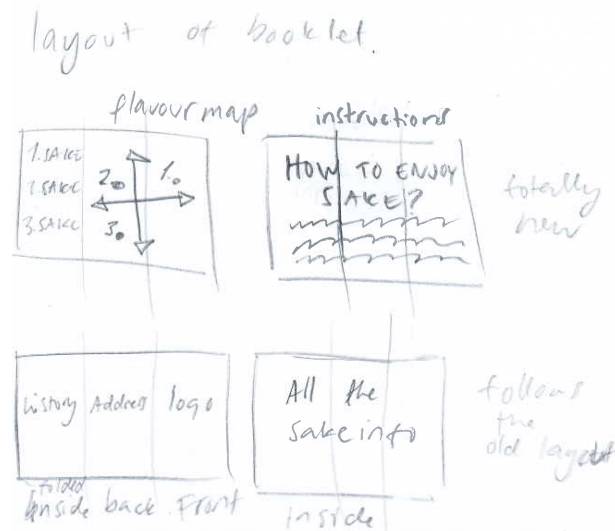 layout of booklet.
flavour map
instructions
1. SAKE
2. SAKE
3. SAKE
1.
2.
3.
HOW TO ENJOY
SAKE?
totally
new
history Address logo
folded
inside back. Front
All the
sake info
inside
follows
the
old layout